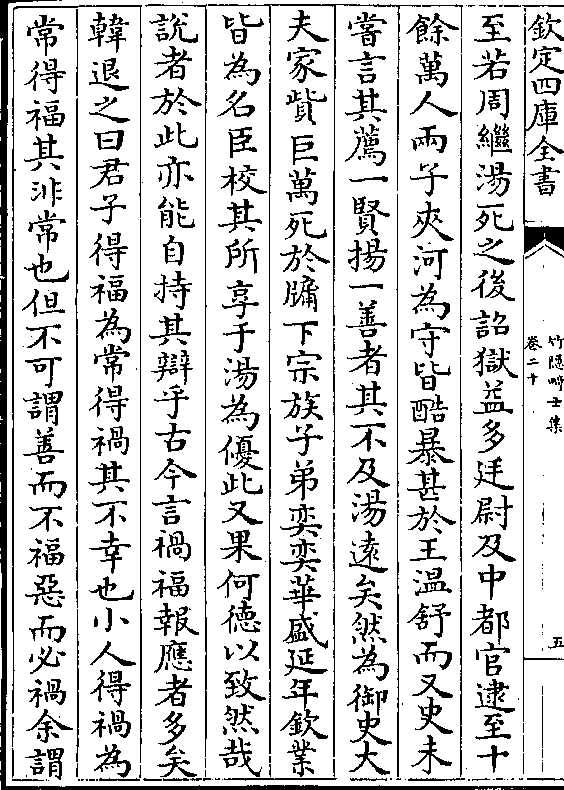 欽定四庫全書
竹隱畸士集
卷二十
五
至若周繼湯死之後詔獄益多廷尉及中都官逮至十
餘萬人兩子夾河為守皆酷暴甚於王温舒而又史未
嘗言其薦一賢揚一善者其不及湯逺矣然為御史大
夫家貲巨萬死於牖下宗族子弟奕奕華盛延年欽業
皆為名臣校其所享于湯為優此又果何徳以致然哉
説者於此亦能自持其辯乎古今言禍福報應者多矣
韓退之曰君子得福為常得禍其不幸也小人得禍為
常得福其非常也但不可謂善而不福惡而必禍余謂